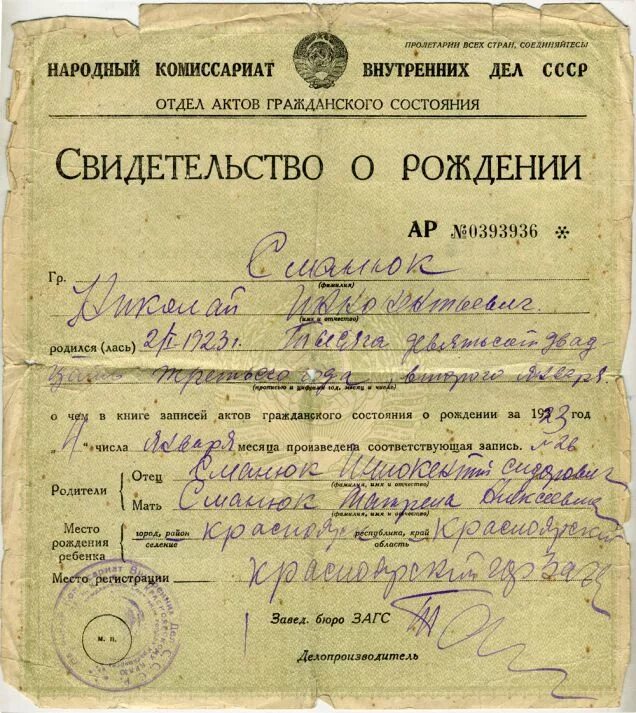 ПРОЛЕТАРИИ ВСЕХ СТРАН, СОЕДИНЯЙТЕСЬ
НАРОДНЫЙ КОМИССАРИАТ ВНУТРЕННИХ ДЕЛ СССР
ОТДЕЛ АКТОВ ГРАЖДАНСКОГО СОСТОЯНИЯ
СВИДЕТЕЛЬСТВО О РОЖДЕНИИ
АР №0393936
Гр. Сманюк
(фамилия)
Николай Инокентьевич.
(имя и отчество)
родился (лась) 2/I-1923г. Тысяча девятьсот двад-
цать третьего года второго января
(прописью и цифрами год, месяц и число)
о чем в книге записей актов гражданского состояния о рождении за 1923 год
"4" числа января месяца произведена соответствующая запись. №26
Родители
Отец Сманюк Инокентий Сидорович
(фамилия, имя и отчество)
Мать Сманюк Алексеевна
(фамилия, имя и отчество)
Место рождения ребенка
город, район селение Краснояр республика, край область Красноярский
Место регистрации Красноярский гор ЗАГС
м. п.
Завед. бюро ЗАГС
Делопроизводитель